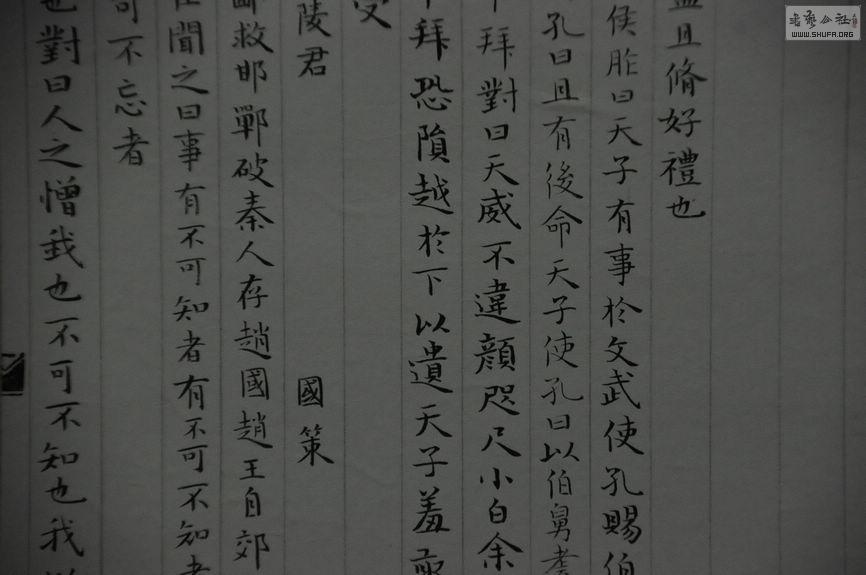 且脩好禮也
侯胙曰天子有事於文武使孔賜伯
孔曰且有後命天子使孔曰以伯舅耋
拜對曰天威不違顏咫尺小白余
拜恐隕越於下以遺天子羞
受
陵君
國策
救邯鄲破秦人存趙國趙王自郊
聞之曰事有不可知者有不可不知者
可不忘者
也對曰人之憎我也不可不知也我
WWW.SHUFA.ORG